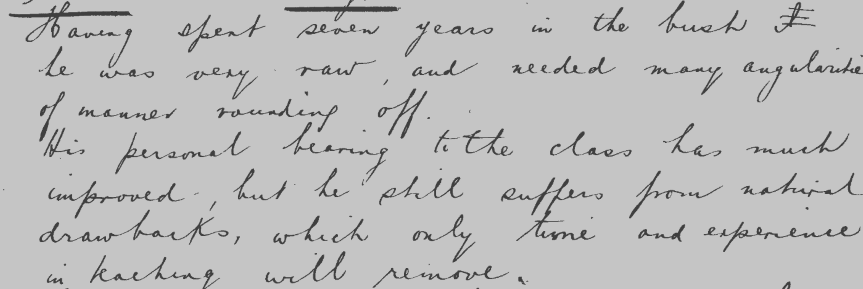 Having spent seven years in the bush I
he was very raw, and needed many angularitie
of manner rounding off.
His personal bearing to the class has much
improved, but he still suffers from natural
drawbacks, which only time and experience
in teaching will remove.